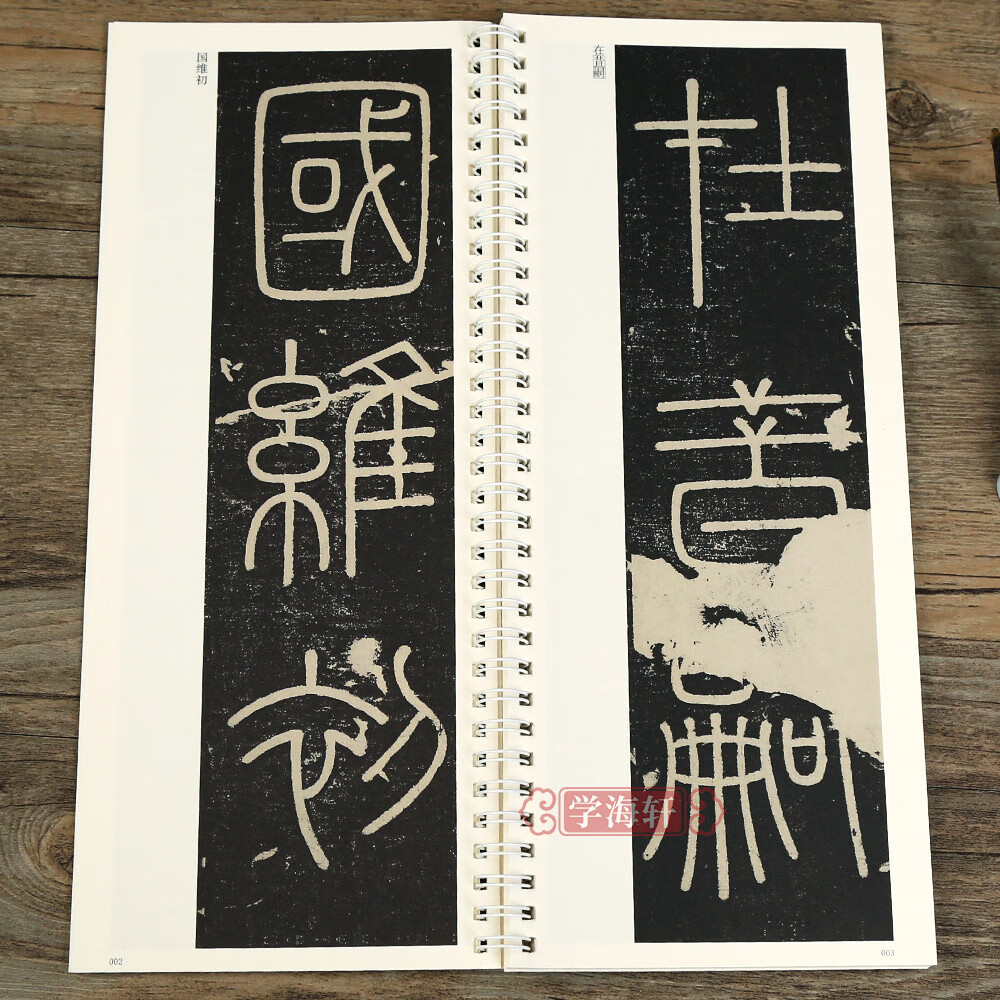 国维初
國
維
初
002
在昔嗣
在
昔
嗣
003
学海轩